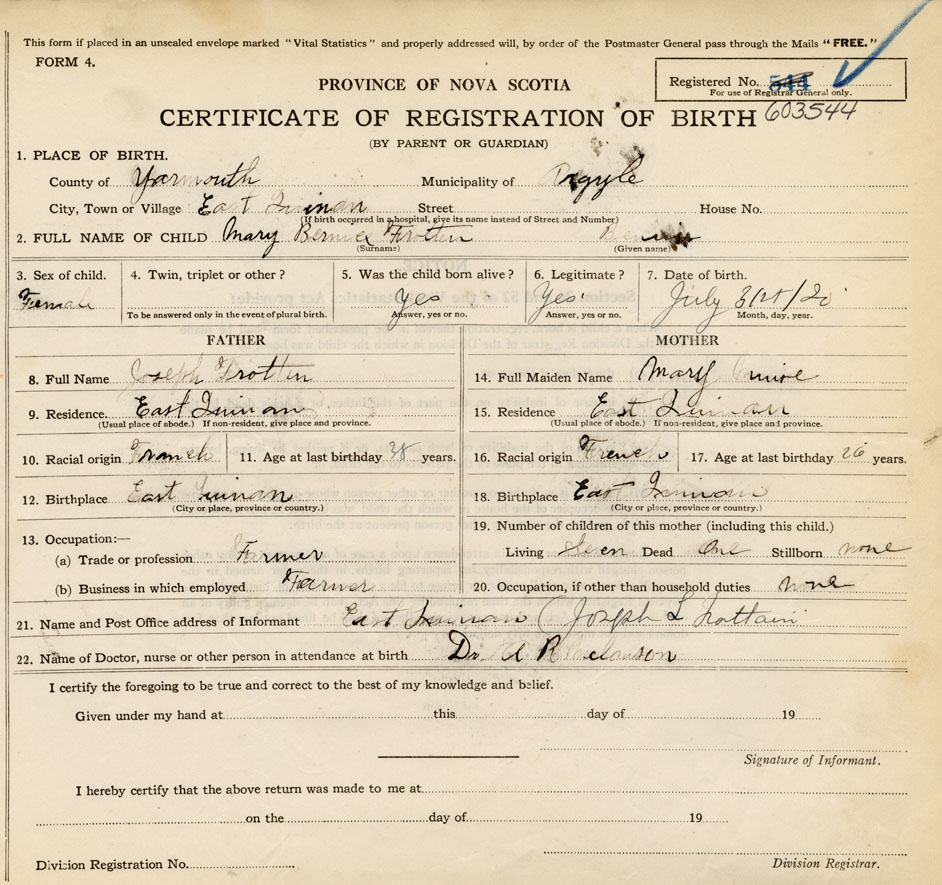 This form if placed in an unsealed envelope marked "Vital Statistics" and properly addressed will, by order of the Postmaster General pass through the Mails "FREE."
FORM 4.
Registered No. 544
For use of Registrar General only.
603544
PROVINCE OF NOVA SCOTIA
CERTIFICATE OF REGISTRATION OF BIRTH
(BY PARENT OR GUARDIAN)
1. PLACE OF BIRTH.
County of Yarmouth Municipality of Argyle
City, Town or Village East Quinan Street House No.
(If birth occurred in a hospital, give its name instead of Street and Number)
2. FULL NAME OF CHILD Mary Bernice Frotten
(Surname) (Given name)
3. Sex of child. 4. Twin, triplet or other? 5. Was the child born alive? 6. Legitimate? 7. Date of birth.
Female Yes Yes July 31st/20
To be answered only in the event of plural birth. Answer, yes or no. Answer, yes or no. Month, day, year.
FATHER MOTHER
8. Full Name Joseph Frotten 14. Full Maiden Name Mary
9. Residence. East Quinan 15. Residence East Quinan
(Usual place of abode.) If non-resident, give place and province. (Usual place of abode.) If non-resident, give place and province.
10. Racial origin French 11. Age at last birthday 38 years. 16. Racial origin French 17. Age at last birthday 26 years.
12. Birthplace East Quinan 18. Birthplace East Quinan
(City or place, province or country.) (City or place, province or country.)
13. Occupation:— 19. Number of children of this mother (including this child.)
(a) Trade or profession Farmer Living Seven Dead One Stillborn none
(b) Business in which employed Farmer 20. Occupation, if other than household duties none
21. Name and Post Office address of Informant East Quinan (Joseph L
22. Name of Doctor, nurse or other person in attendance at birth Dr. A R Melanson
I certify the foregoing to be true and correct to the best of my knowledge and belief.
Given under my hand at this day of 19
Signature of Informant.
I hereby certify that the above return was made to me at
on the day of 19
Division Registration No.
Division Registrar.